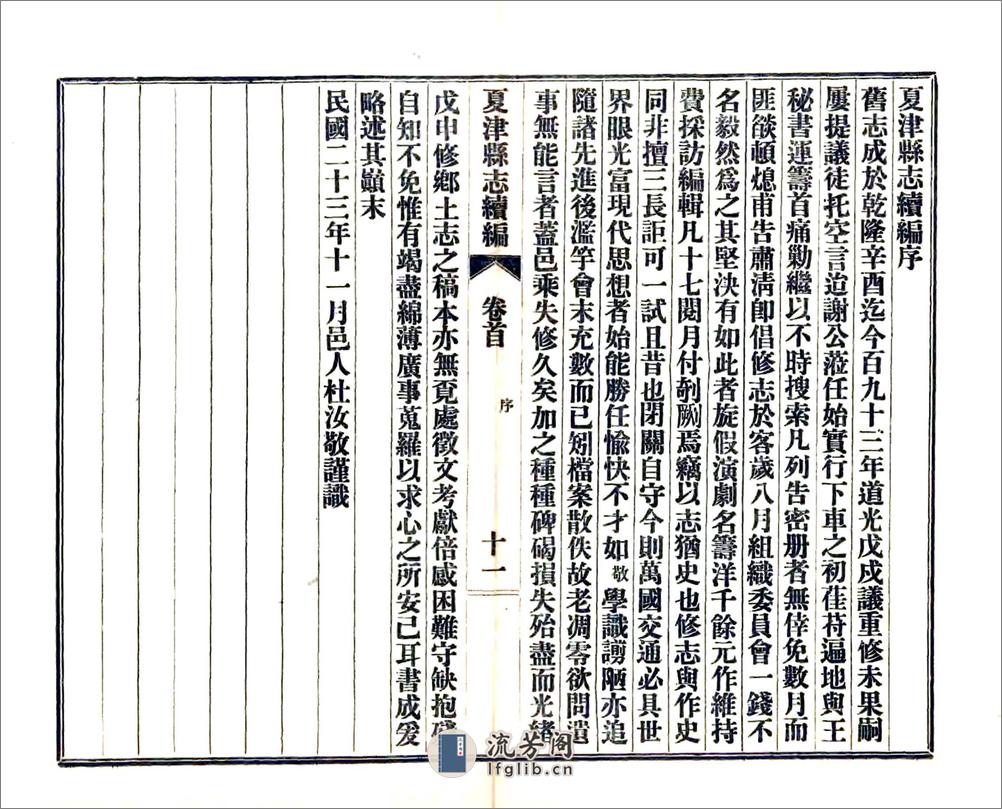 夏津縣志續編序
舊志成於乾隆辛酉迄今百九十三年道光戊戌議重修未果嗣
屢提議徒托空言迨謝公蒞任始實行下車之初萑苻遍地與王
秘書運籌首痛勦繼以不時搜索凡列告密册者無倖免數月而
匪燄頓熄甫告肅清卽倡修志於客歲八月組織委員會一錢不
名毅然爲之其堅決有如此者旋假演劇名籌洋千餘元作維持
費採訪編輯凡十七閱月付剞劂焉竊以志猶史也修志與作史
同非擅三長詎可一試且昔也閉關自守今則萬國交通必具世
界眼光富現代思想者始能勝任愉快不才如敬學識譾陋亦追
隨諸先進後濫竽會末充數而已矧檔案散佚故老凋零欲問遺
事無能言者蓋邑乘失修久矣加之種種碑碣損失殆盡而光緒
夏津縣志續編
卷首
序
十一
戊申修鄉土志之稿本亦無覓處徵文考獻倍感困難守缺抱殘
自知不免惟有竭盡綿薄廣事蒐羅以求心之所安已耳書成爰
略述其顚末
民國二十三年十一月邑人杜汝敬謹識
流芳阁
lfglib.cn